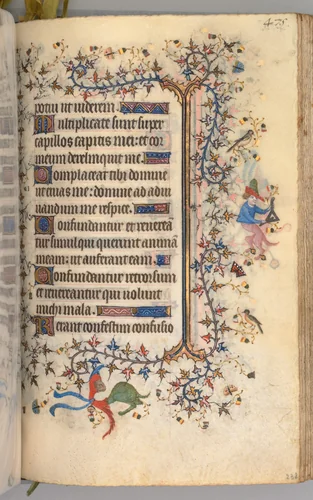 potui ut viderem.
Multiplicate sunt super
capillos capitis mei: et cor
meum dereliquit me.
Complaceat tibi domine
ut eruas me: domine ad adiu
uandum me respice.
Confundantur et reuerea
tur simul qui querunt animā
meam: ut auferant eam.
Confundantur retrorsum
et reuereantur qui uolunt
michi mala.
Ferant confestim confusio